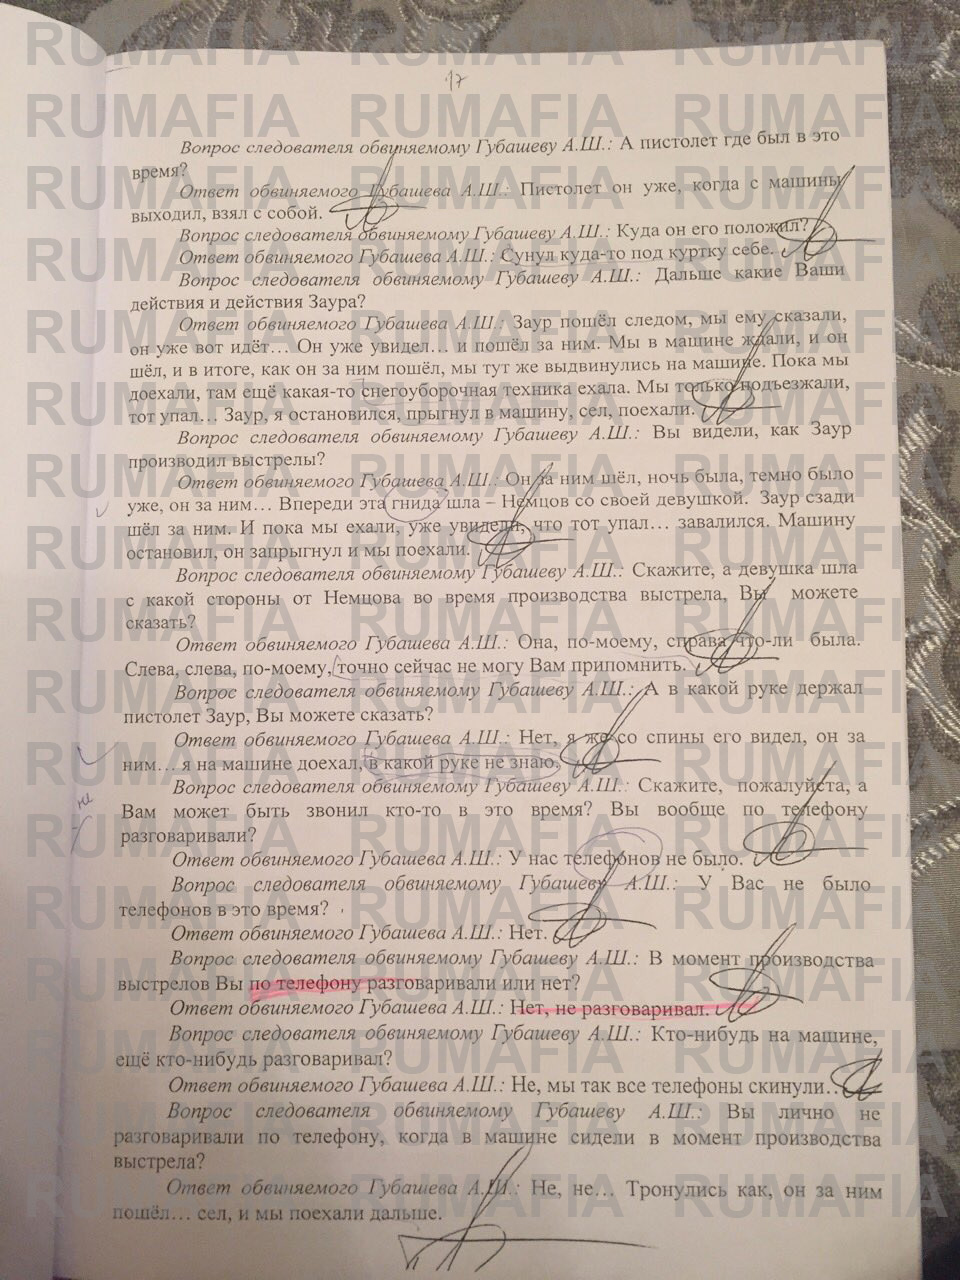 17
Вопрос следователя обвиняемому Губашеву А.Ш.: А пистолет где был в это
время?
Ответ обвиняемого Губашева А.Ш.: Пистолет он уже, когда с машины
выходил, взял с собой.
Вопрос следователя обвиняемому Губашеву А.Ш.: Куда он его положил?
Ответ обвиняемого Губашева А.Ш.: Сунул куда-то под куртку себе.
Вопрос следователя обвиняемому Губашеву А.Ш.: Дальше какие Ваши
действия и действия Заура?
Ответ обвиняемого Губашева А.Ш.: Заур пошёл следом, мы ему сказали,
он уже вот идёт… Он уже увидел… и пошёл за ним. Мы в машине ждали, и он
шёл, и в итоге, как он за ним пошёл, мы тут же выдвинулись на машине. Пока мы
доехали, там ещё какая-то снегоуборочная техника ехала. Мы только подъезжали,
тот упал… Заур, я остановился, прыгнул в машину, сел, поехали.
Вопрос следователя обвиняемому Губашеву А.Ш.: Вы видели, как Заур
производил выстрелы?
Ответ обвиняемого Губашева А.Ш.: Он за ним шёл, ночь была, темно было
уже, он за ним… Впереди эта гнида шла – Немцов со своей девушкой. Заур сзади
шёл за ним. И пока мы ехали, уже увидели, что тот упал… завалился. Машину
остановил, он запрыгнул и мы поехали.
Вопрос следователя обвиняемому Губашеву А.Ш.: Скажите, а девушка шла
с какой стороны от Немцова во время производства выстрела, Вы можете
сказать?
Ответ обвиняемого Губашева А.Ш.: Она, по-моему, справа что-ли была.
Слева, слева, по-моему, точно сейчас не могу Вам припомнить.
Вопрос следователя обвиняемому Губашеву А.Ш.: А в какой руке держал
пистолет Заур, Вы можете сказать?
Ответ обвиняемого Губашева А.Ш.: Нет, я же со спины его видел, он за
ним… я на машине доехал, в какой руке не знаю.
Вопрос следователя обвиняемому Губашеву А.Ш.: Скажите, пожалуйста, а
Вам может быть звонил кто-то в это время? Вы вообще по телефону
разговаривали?
Ответ обвиняемого Губашева А.Ш.: У нас телефонов не было.
Вопрос следователя обвиняемому Губашеву А.Ш.: У Вас не было
телефонов в это время?
Ответ обвиняемого Губашева А.Ш.: Нет.
Вопрос следователя обвиняемому Губашеву А.Ш.: В момент производства
выстрелов Вы по телефону разговаривали или нет?
Ответ обвиняемого Губашева А.Ш.: Нет, не разговаривал.
Вопрос следователя обвиняемому Губашеву А.Ш.: Кто-нибудь на машине,
ещё кто-нибудь разговаривал?
Ответ обвиняемого Губашева А.Ш.: Не, мы так все телефоны скинули.
Вопрос следователя обвиняемому Губашеву А.Ш.: Вы лично не
разговаривали по телефону, когда в машине сидели в момент производства
выстрела?
Ответ обвиняемого Губашева А.Ш.: Не, не… Тронулись как, он за ним
пошёл… сел, и мы поехали дальше.